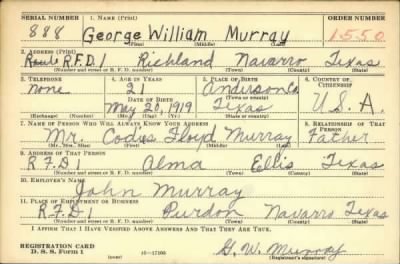 SERIAL NUMBER 1. NAME (Print) ORDER NUMBER
888 George William Murray 1550
(First) (Middle) (Last)
2. ADDRESS (Print)
Route R.F.D. 1 Richland Navarro Texas
(Number and street or R. F. D. number) (Town) (County) (State)
3. TELEPHONE 4. AGE IN YEARS 5. PLACE OF BIRTH 6. COUNTRY OF CITIZENSHIP
none 21 Anderson Co.
DATE OF BIRTH (Town or county)
May 20, 1919 Texas U.S.A.
(Exchange) (Number) (Mo.) (Day) (Yr.) (State or country)
7. NAME OF PERSON WHO WILL ALWAYS KNOW YOUR ADDRESS 8. RELATIONSHIP OF THAT PERSON
Mr. Floyd Murray Father
(Mr., Mrs., Miss) (First) (Middle) (Last)
9. ADDRESS OF THAT PERSON
R.F.D. 1 Alma Ellis Texas
(Number and street or R. F. D. number) (Town) (County) (State)
10. EMPLOYER'S NAME
John Murray
11. PLACE OF EMPLOYMENT OR BUSINESS
R.F.D. 1 Purdon Navarro Texas
(Number and street or R. F. D. number) (Town) (County) (State)
I AFFIRM THAT I HAVE VERIFIED ABOVE ANSWERS AND THAT THEY ARE TRUE.
REGISTRATION CARD
D. S. S. FORM 1 (over) G. W. Murray
(Registrant's signature)